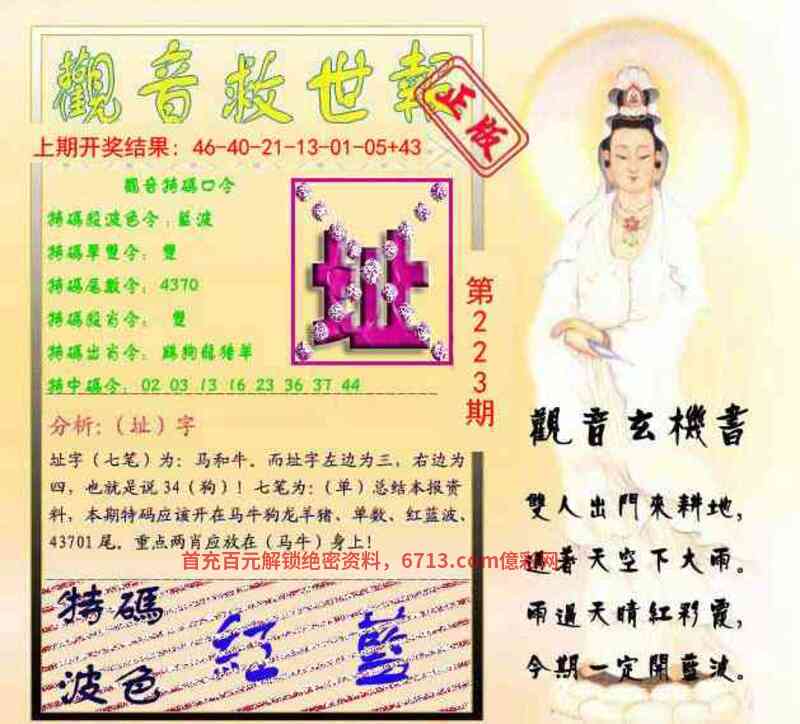 觀音救世報
正版
上期开奖结果：46-40-21-13-01-05+43
觀音特碼口令
特碼殺波色令：藍波
特碼單雙令：雙
特碼尾數令：4370
特碼殺肖令：雙
特碼出肖令：馬狗龍豬羊
特中碼令：02 03 13 16 23 36 37 44
址
第223期
分析:（址）字
址字（七笔）为：马和牛。而址字左边为三，右边为
四，也就是说 34（狗）！七笔为:（单）总结本报资
料，本期特码应该开在马牛狗龙羊猪、单数、红蓝波、
43701 尾。重点两肖应放在（马牛）身上！
首充百元解锁绝密资料，6713.com億彩网
特碼
波色
紅 藍
觀音玄機書
雙人出門來耕地，
遇著天空下大雨。
雨過天晴紅彩霞，
今期一定開藍波。